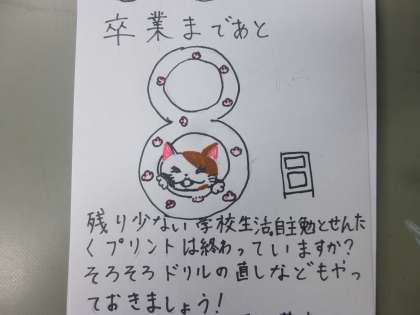 卒業まであと
8日
残り少ない学校生活。自主勉とせんた
くプリントは終わっていますか?
そろそろドリルの直しなどもやっ
ておきましょう!